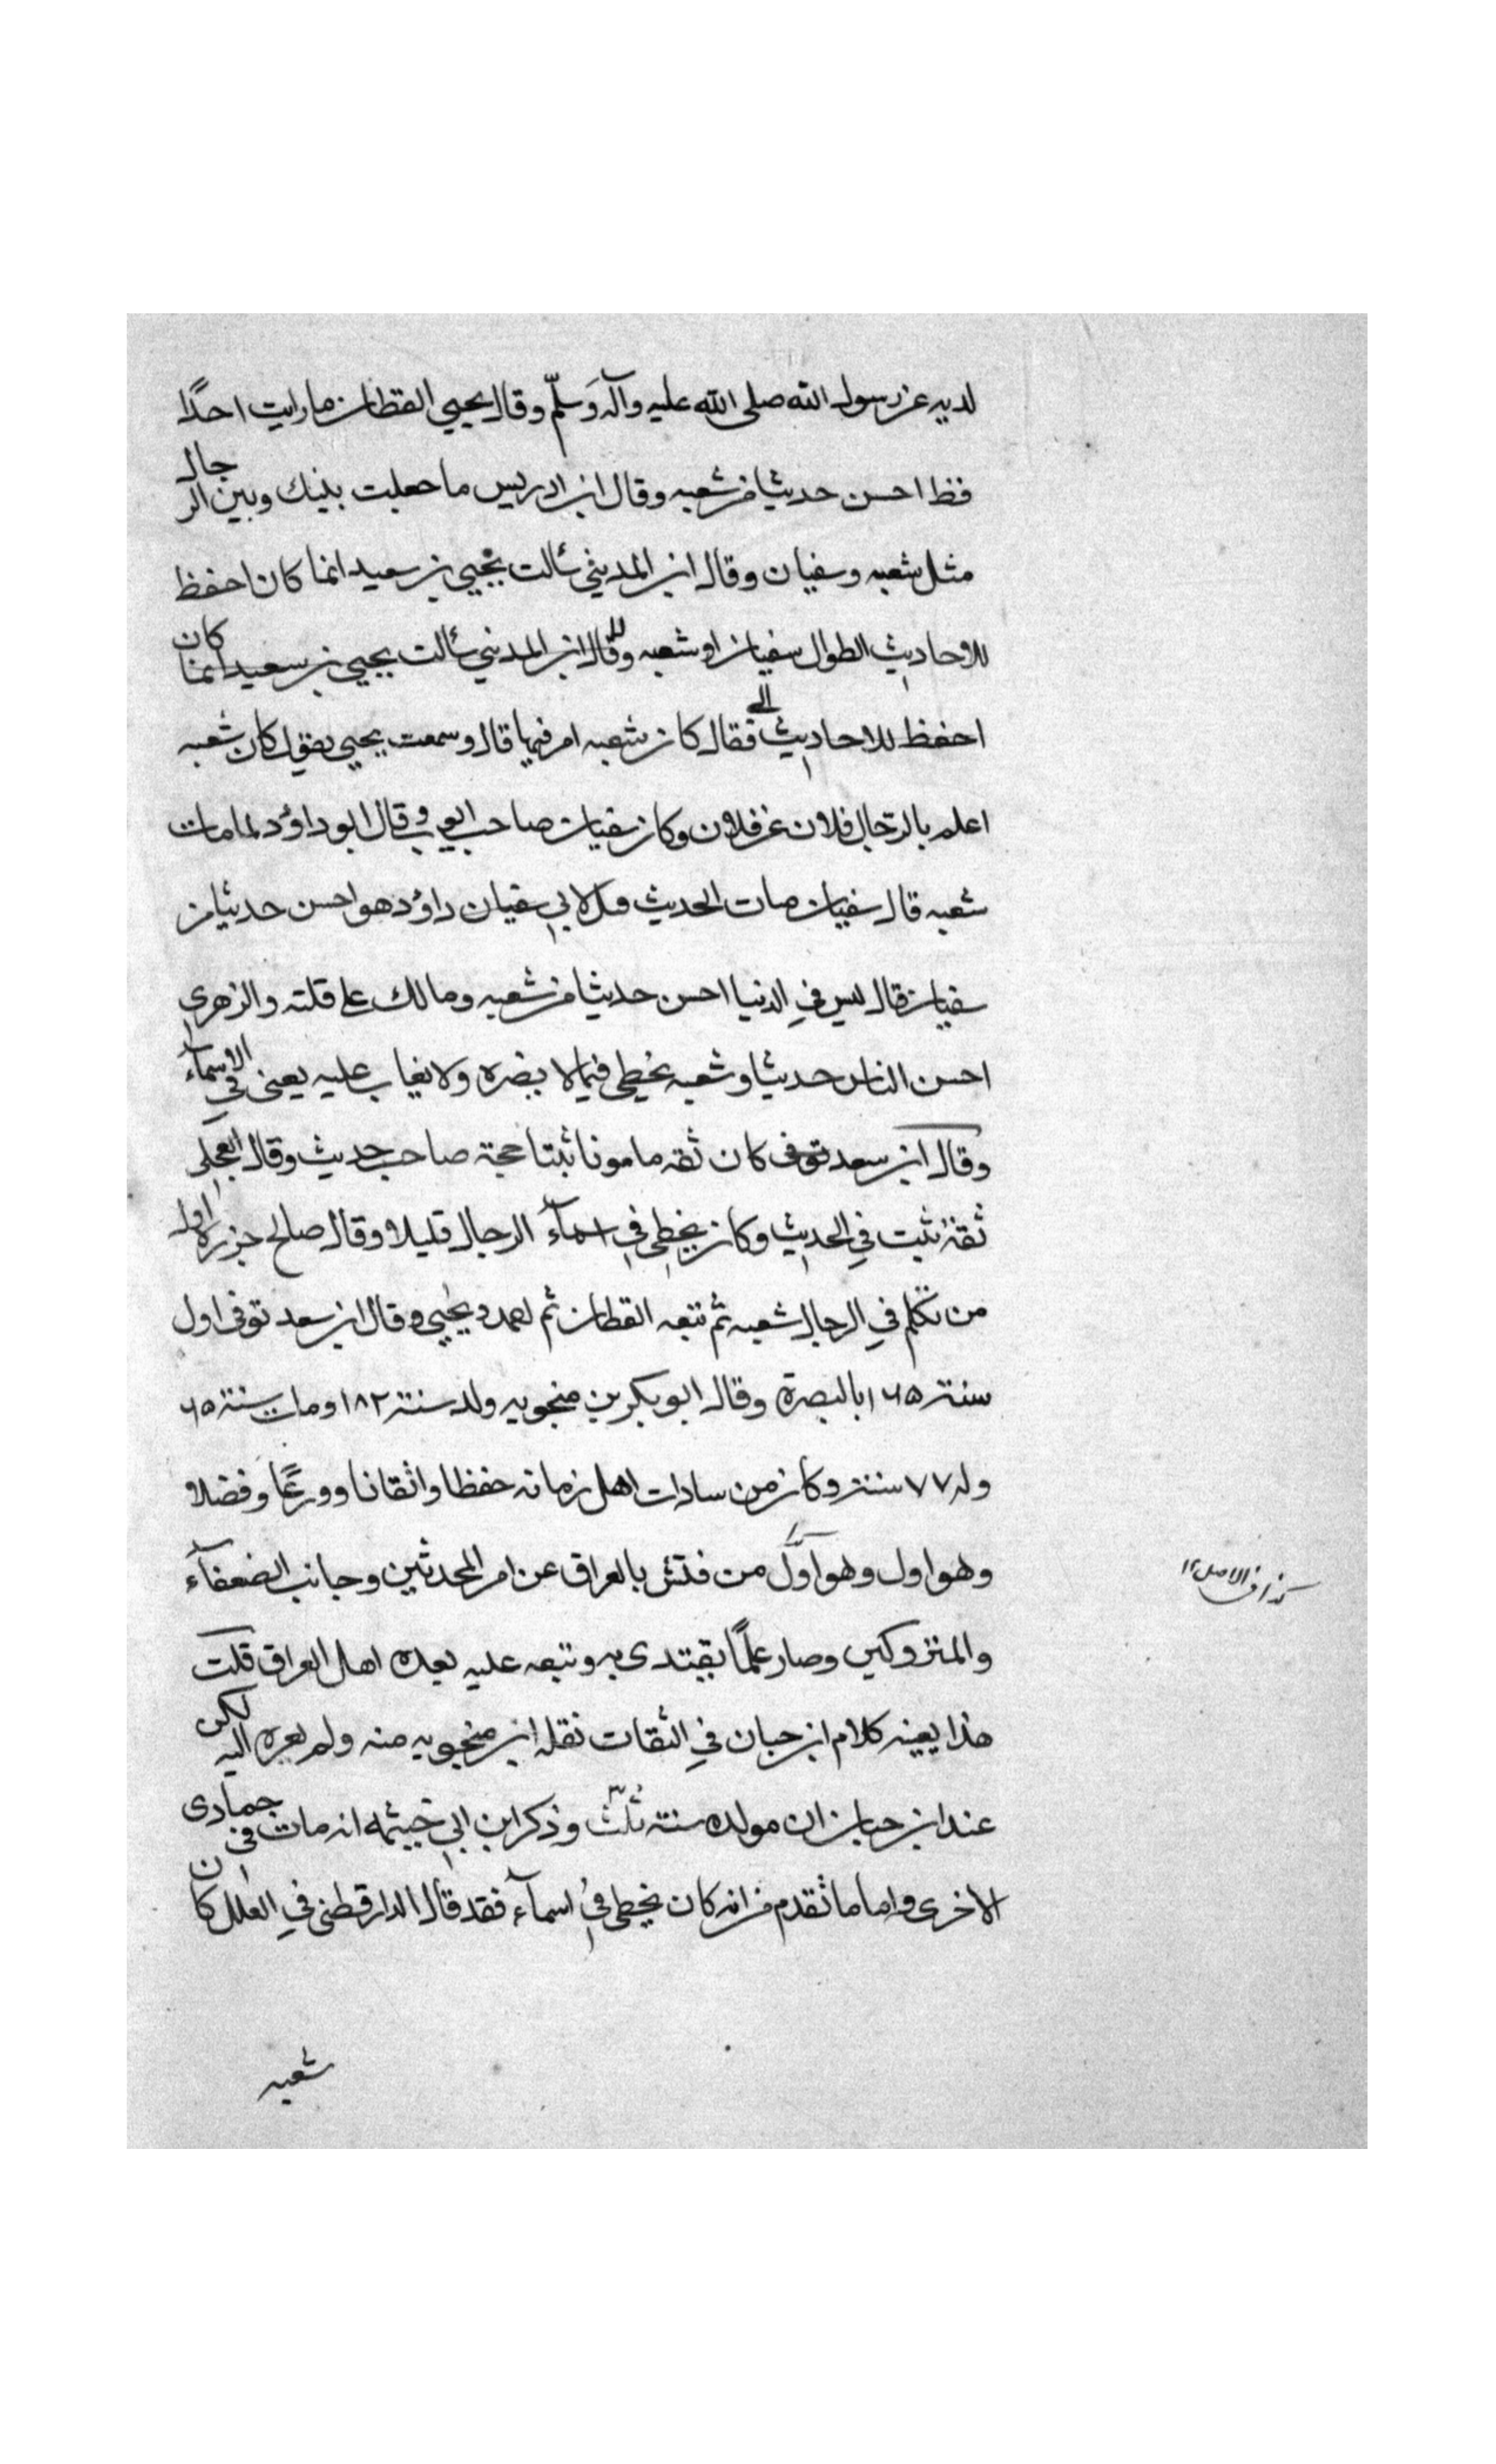 لديه عن رسول الله صلى الله عليه وآله وسلم وقال يحيي القطان ما رايت احدًا
قط احسن حديثا من شعبه وقال ابن ادريس ما جعلت بينك وبين الرجال
مثل شعبه وسفيان وقال ابن المديني سألت يحيي بن سعيد ايما كان احفظ
للاحاديث الطوال سفيان او شعبه وقال ابن المديني سألت يحيي بن سعيد ايما كان
احفظ للاحاديث فقال كان شعبه امر فيها قال وسمعت يحيي يقول كان شعبه
اعلم بالرجال فلان عن فلان وكان سفيان صاحب ابواب وقال ابو داؤد لما مات
شعبه قال سفيان مات الحديث قيل لابي سفيان داؤد هو احسن حديثا من
سفيان قال ليس في الدنيا احسن حديثا من شعبه ومالك على قلته والزهري
احسن الناس حديثا وشعبه يخطي فيما لا يضره ولا يعاب عليه يعني في الاسمآء
وقال ابن سعد توفى كان ثقه مامونا ثبتا حجة صاحب حديث وقال العجلي
ثقة ثبت في الحديث وكان يخطي في اسمآء الرجال قليلا وقال صالح جزره اول
من تكلم في الرجال شعبه ثم تبعه القطان ثم احمد ويحيي وقال ابن سعد توفى اول
سنة ١٦٥ بالبصرة وقال ابو بكر بن منجويه ولد سنة ١٨٢ ومات سنة ٦٥
وله ٧٧ سنة وكان من سادات اهل زمانه حفظا واتقانا وورعًا وفضلا
وهو اول وهو اوّل من فتش بالعراق عن امر المحدثين وجانب الضعفآء
كذا في الاصل ١٢
والمتروكين وصار علمًا يقتدى به وتبعه عليه بعده اهل العراق قلت
هذا بعينه كلام ابن حبان في الثقات نقله ابن منجويه منه ولم يعزه اليه لكن
عند ابن حبان ان مولده سنة ثلث وذكر ابن ابي خيثمه انه مات في جمادى
الاخرى واما ما تقدم من انه كان يخطي في اسمآء فقد قال الدارقطني في العلل كان
شعبه